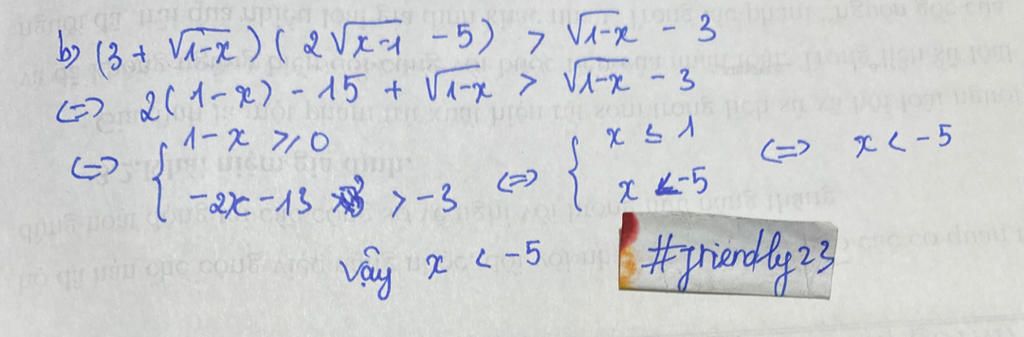 b) (3 + √1-x) ( 2√x-1 - 5) > √1-x - 3
<=> 2(1-x) - 15 + √1-x > √1-x - 3
<=> { 1-x ≥ 0 -2x - 13 > -3 <=> { x ≤ 1 x < -5 <=> x < -5
Vậy x < -5
#friendly23